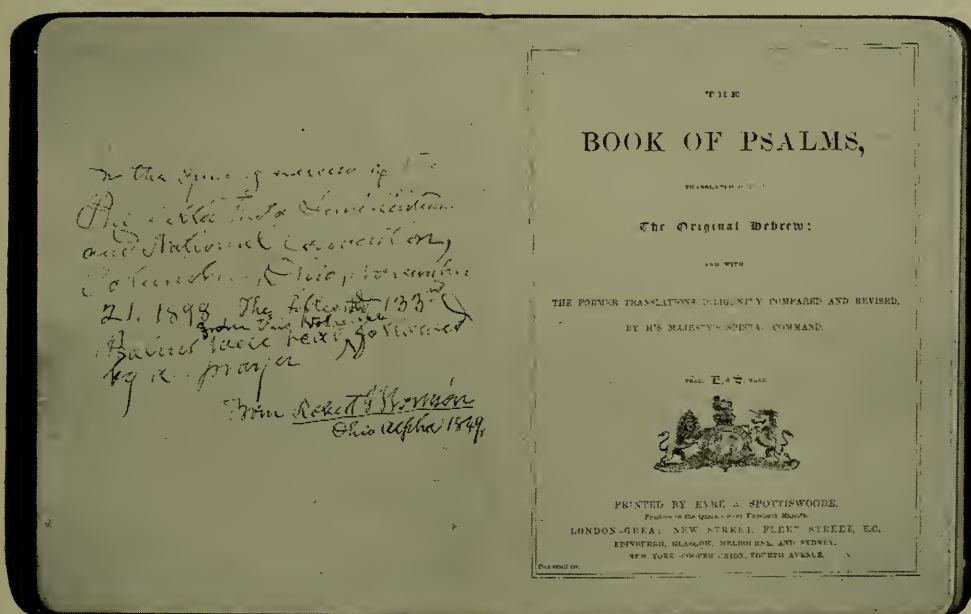 In the opening exercises of the
Phi Delta Theta Semi-Centennial
and National Convention,
Columbus, Ohio, November
21, 1898. The fifteenth 133rd
from this volume
Psalms were read followed
by a prayer
From Robert Morrison
Ohio Alpha 1849.
THE
BOOK OF PSALMS,
TRANSLATED OUT OF
The Original Hebrew;
AND WITH
THE FORMER TRANSLATIONS DILIGENTLY COMPARED AND REVISED,
BY HIS MAJESTY'S SPECIAL COMMAND.
PRINTED BY EYRE & SPOTTISWOODE,
Printers to the Queen's most Excellent Majesty.
LONDON—GREAT NEW STREET, FLEET STREET, E.C.
EDINBURGH, GLASGOW, MELBOURNE, AND SYDNEY.
NEW YORK—COOPER UNION, FOURTH AVENUE.